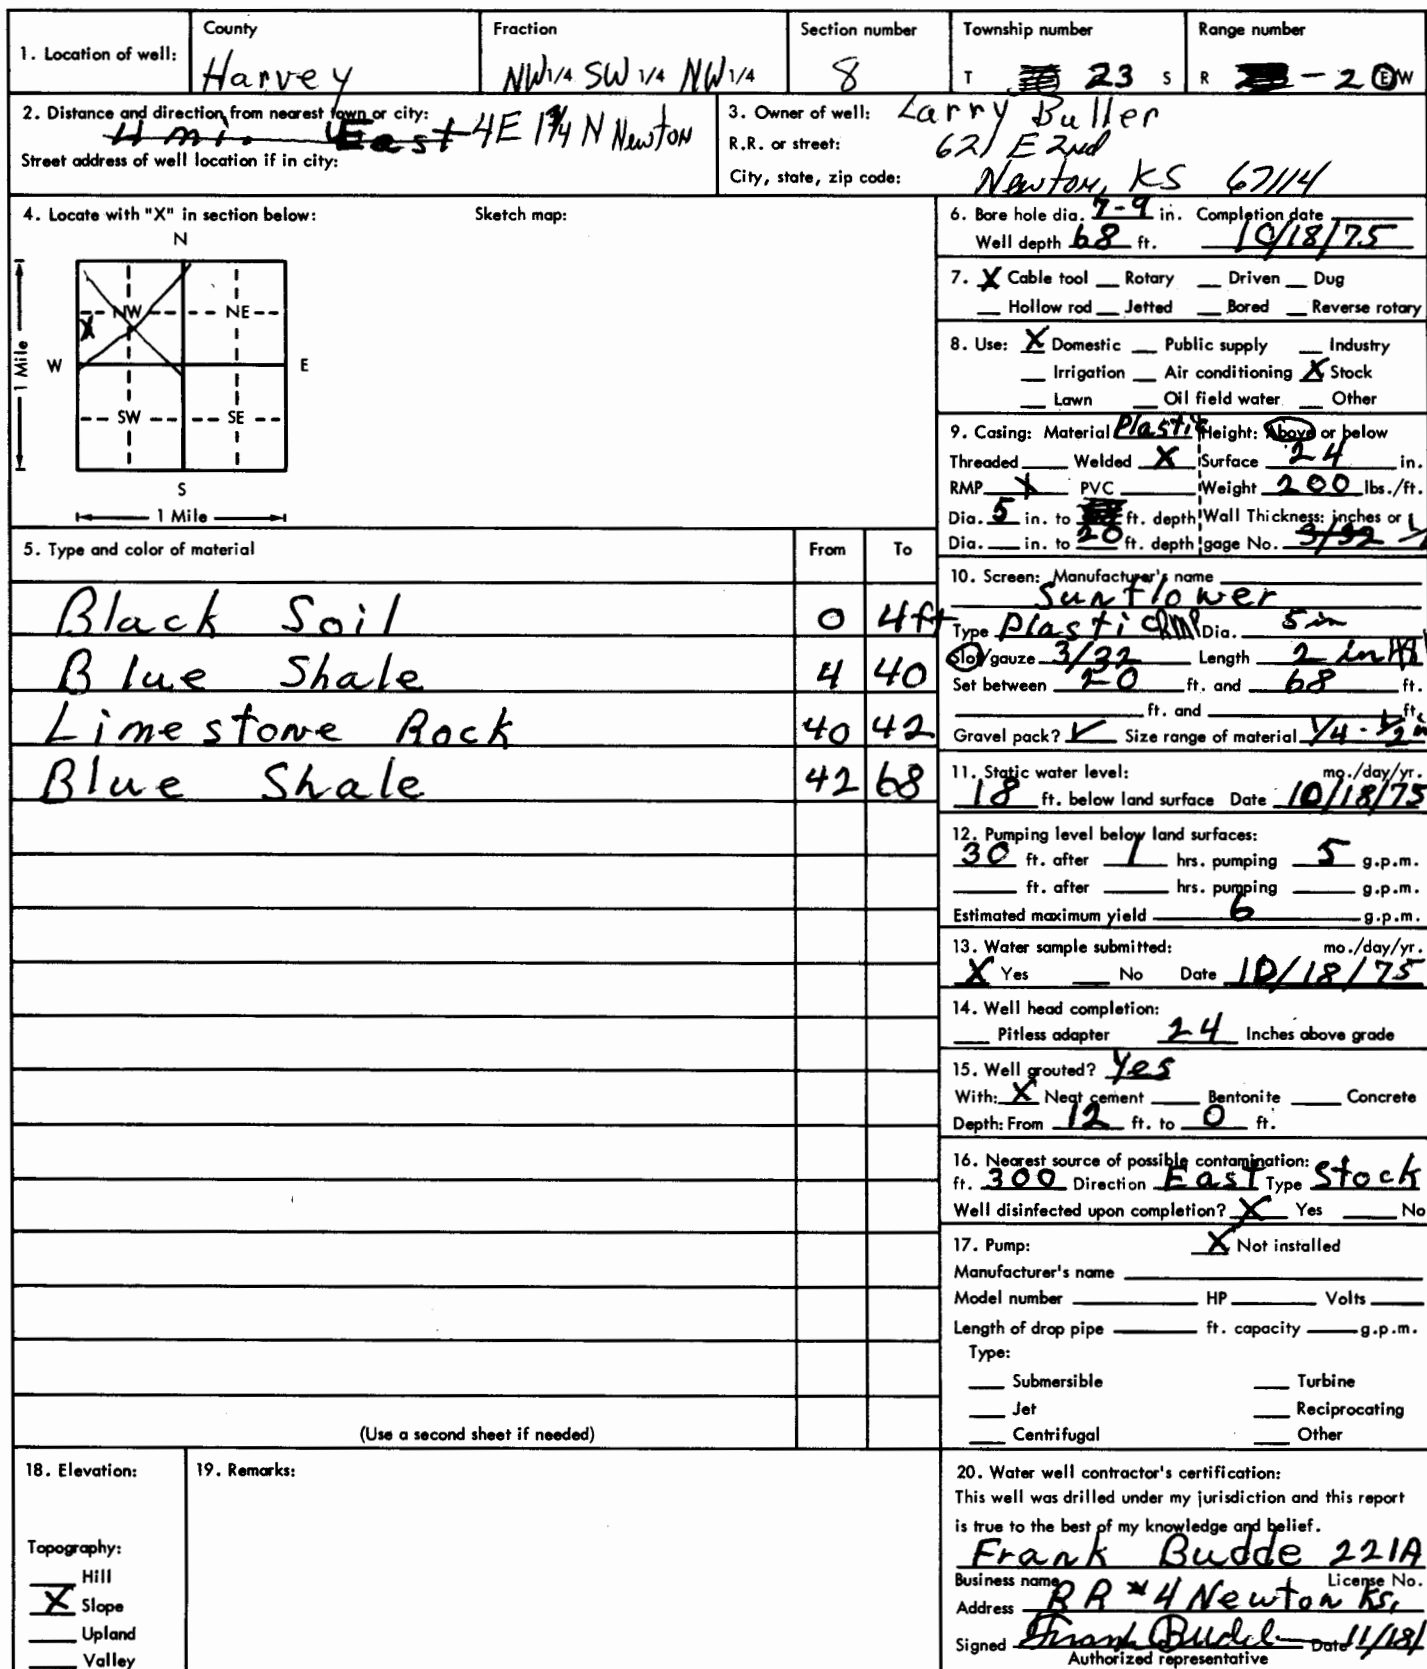 1. Location of well:
County
Harvey
Fraction
NW 1/4 SW 1/4 NW 1/4
Section number
8
Township number
T 23 S
Range number
R - 2 E W
2. Distance and direction from nearest town or city:
4 mi. East 4E 1 3/4 N Newton
Street address of well location if in city:
3. Owner of well: Larry Buller
R.R. or street: 621 E 2nd
City, state, zip code: Newton, KS 67114
4. Locate with "X" in section below:
Sketch map:
N
NW NE
X
1 Mile W E
SW SE
S
1 Mile
5. Type and color of material From To
Black Soil 0 4ft
Blue Shale 4 40
Limestone Rock 40 42
Blue Shale 42 68
(Use a second sheet if needed)
6. Bore hole dia. 7-9 in. Completion date
Well depth 68 ft. 10/18/75
7. X Cable tool __ Rotary __ Driven __ Dug
__ Hollow rod __ Jetted __ Bored __ Reverse rotary
8. Use: X Domestic __ Public supply __ Industry
__ Irrigation __ Air conditioning X Stock
__ Lawn __ Oil field water __ Other
9. Casing: Material Plastic Height: Above or below
Threaded __ Welded X Surface 24 in.
RMP X PVC __ Weight 200 lbs./ft.
Dia. 5 in. to ft. depth Wall Thickness: inches or
Dia. __ in. to 20 ft. depth gage No. 3/32
10. Screen: Manufacturer's name
Sunflower
Type Plastic RMP Dia. 5 in
Slot/gauze 3/32 Length 2 in
Set between 20 ft. and 68 ft.
__ ft. and __ ft.
Gravel pack? ✓ Size range of material 1/4 - 1/2 in
11. Static water level: mo./day/yr.
18 ft. below land surface Date 10/18/75
12. Pumping level below land surfaces:
30 ft. after 1 hrs. pumping 5 g.p.m.
__ ft. after __ hrs. pumping __ g.p.m.
Estimated maximum yield 6 g.p.m.
13. Water sample submitted: mo./day/yr.
X Yes __ No Date 10/18/75
14. Well head completion:
__ Pitless adapter 24 Inches above grade
15. Well grouted? Yes
With: X Neat cement __ Bentonite __ Concrete
Depth: From 12 ft. to 0 ft.
16. Nearest source of possible contamination:
ft. 300 Direction East Type Stock
Well disinfected upon completion? X Yes __ No
17. Pump: X Not installed
Manufacturer's name
Model number __ HP __ Volts __
Length of drop pipe __ ft. capacity __ g.p.m.
Type:
__ Submersible __ Turbine
__ Jet __ Reciprocating
__ Centrifugal __ Other
18. Elevation:
Topography:
__ Hill
X Slope
__ Upland
__ Valley
19. Remarks:
20. Water well contractor's certification:
This well was drilled under my jurisdiction and this report
is true to the best of my knowledge and belief.
Frank Budde 221A
Business name License No.
Address RR #4 Newton Ks.
Signed Frank Budde Date 11/18/
Authorized representative